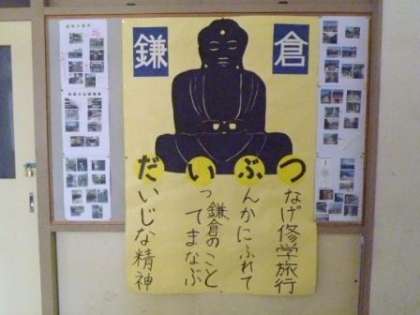 鎌倉
だいじな精神
いってまなぶ
鎌倉のこと、
ぶんかにふれて
つなげ修学旅行